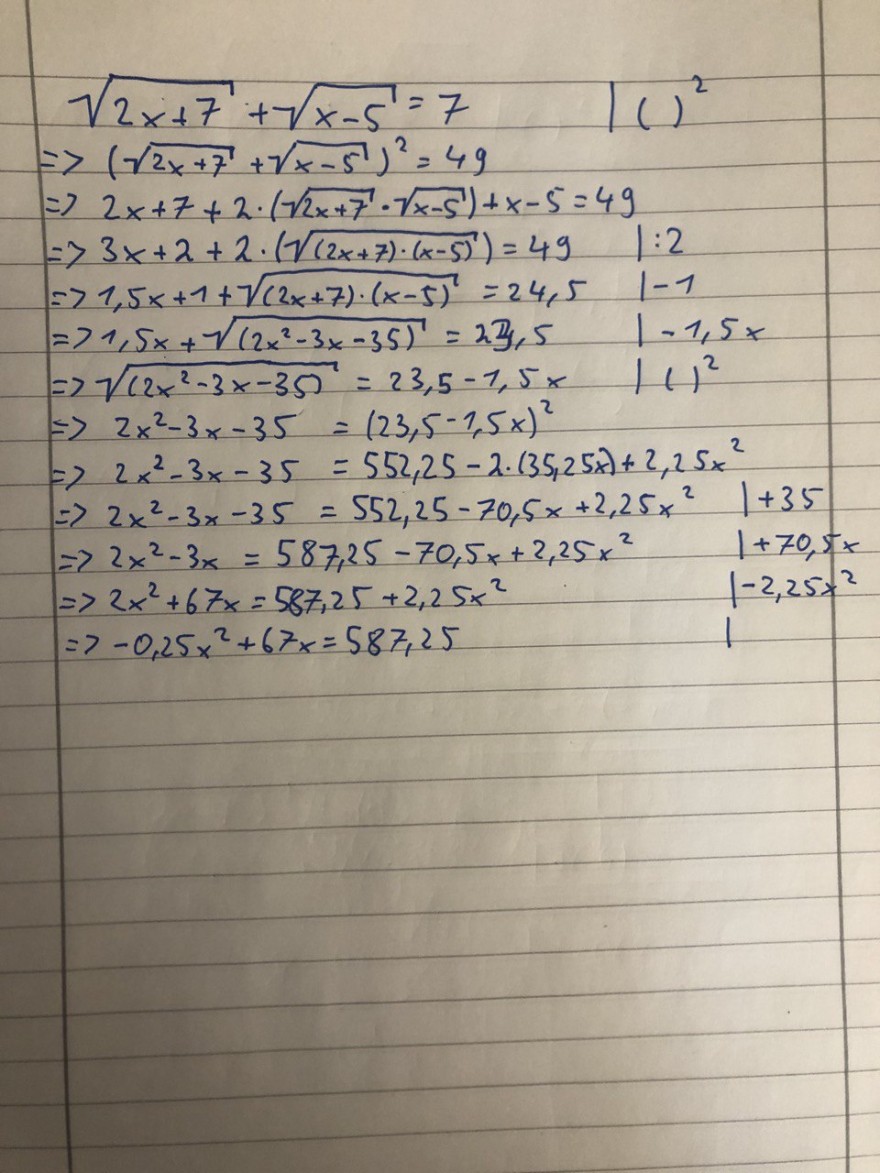 √(2x+7) + √(x-5) = 7 | ( )²
=> (√(2x+7) + √(x-5))² = 49
=> 2x+7 + 2·(√(2x+7)·√(x-5)) + x-5 = 49
=> 3x+2 + 2·(√((2x+7)·(x-5))) = 49 | :2
=> 1,5x+1+√((2x+7)·(x-5)) = 24,5 | -1
=> 1,5x + √((2x²-3x-35)) = 23,5 | -1,5x
=> √((2x²-3x-35)) = 23,5-1,5x | ( )²
=> 2x²-3x-35 = (23,5-1,5x)²
=> 2x²-3x-35 = 552,25-2·(35,25x)+2,25x²
=> 2x²-3x-35 = 552,25-70,5x+2,25x² | +35
=> 2x²-3x = 587,25-70,5x+2,25x² | +70,5x
=> 2x²+67x = 587,25+2,25x² | -2,25x²
=> -0,25x²+67x = 587,25 |